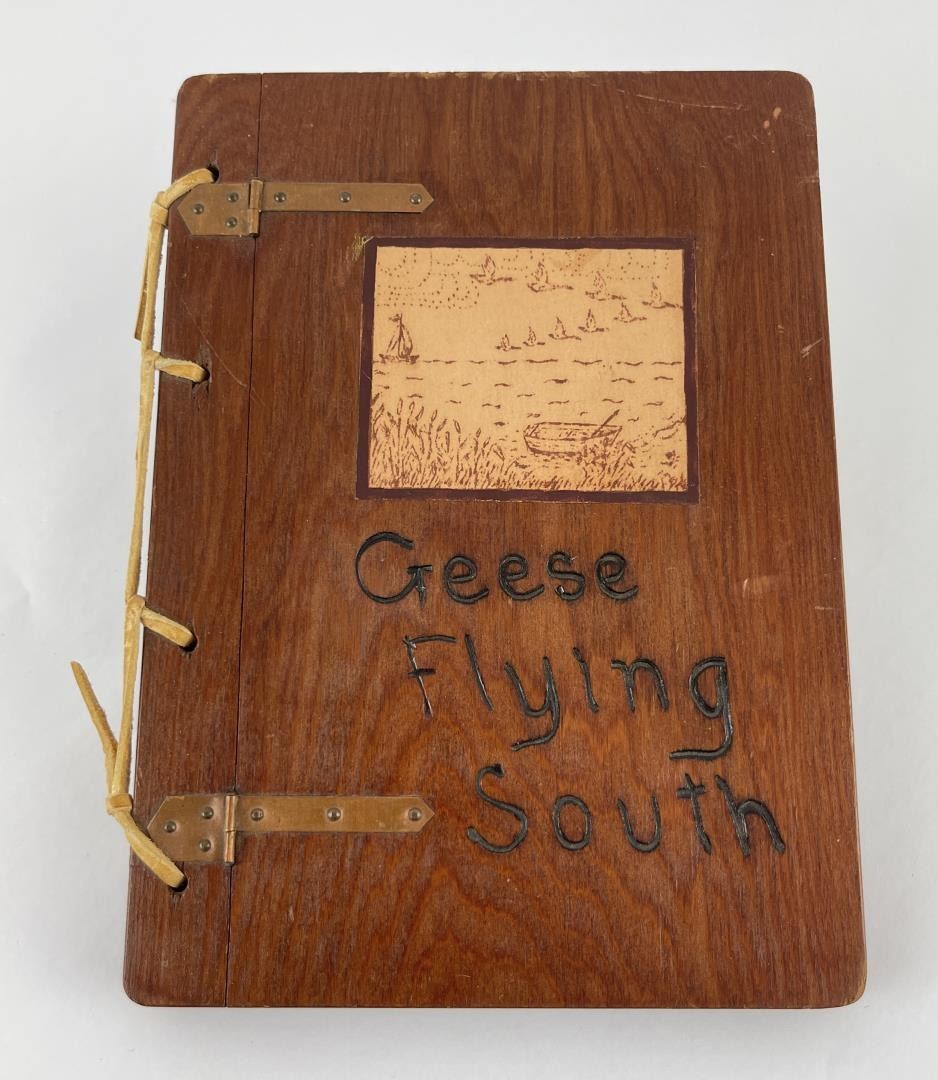 Geese
Flying
South